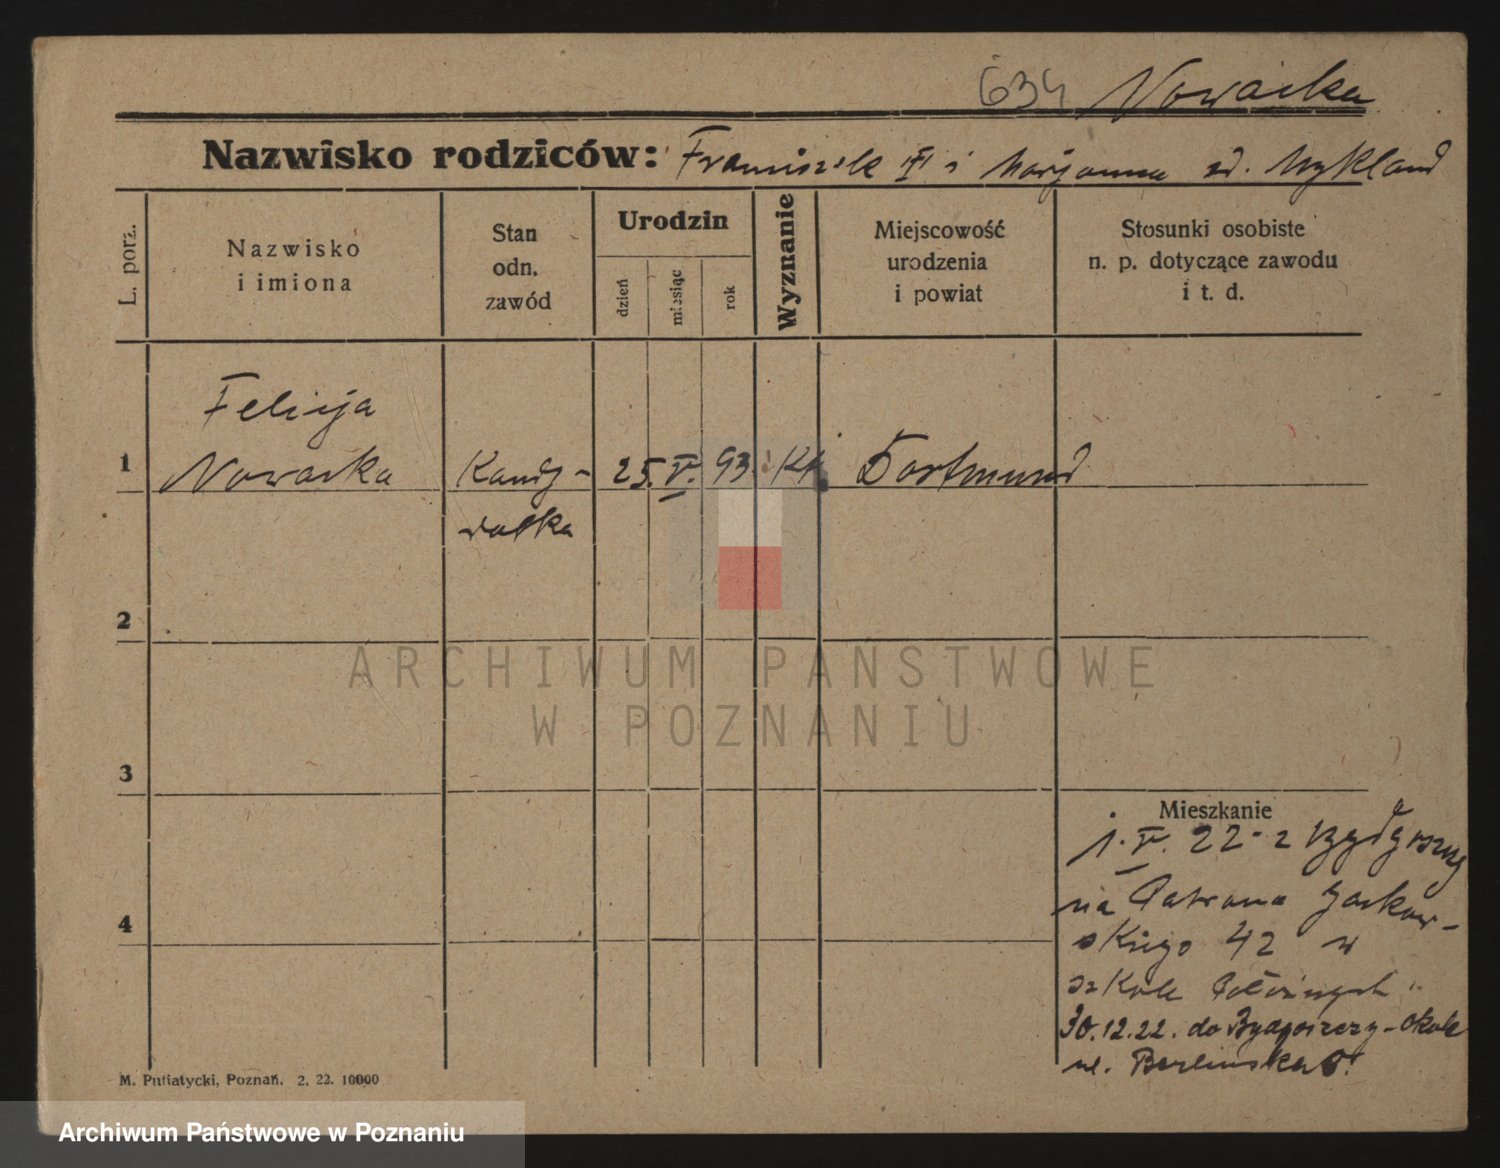 634 Nowacka
Nazwisko rodziców: Franciszek i Marjanna zd. Nykland
L. porz.
Nazwisko
i imiona
Stan
odn.
zawód
Urodzin
dzień
miesiąc
rok
Wyznanie
Miejscowość
urodzenia
i powiat
Stosunki osobiste
n. p. dotyczące zawodu
i t. d.
Felicja
1 Nowacka Kandy- 25. V. 93. Kt Dortmund
datka
2
ARCHIWUM PAŃSTWOWE
W POZNANIU
3
Mieszkanie
1. V. 22 - z Bydgoszczy
na Patrona Jackow-
skiego 42 w
szkole Położnych
30.12.22. do Bydgoszczy-Okole
ul. Berlinska 8.
4
M. Putiatycki, Poznań. 2. 22. 10000
Archiwum Państwowe w Poznaniu